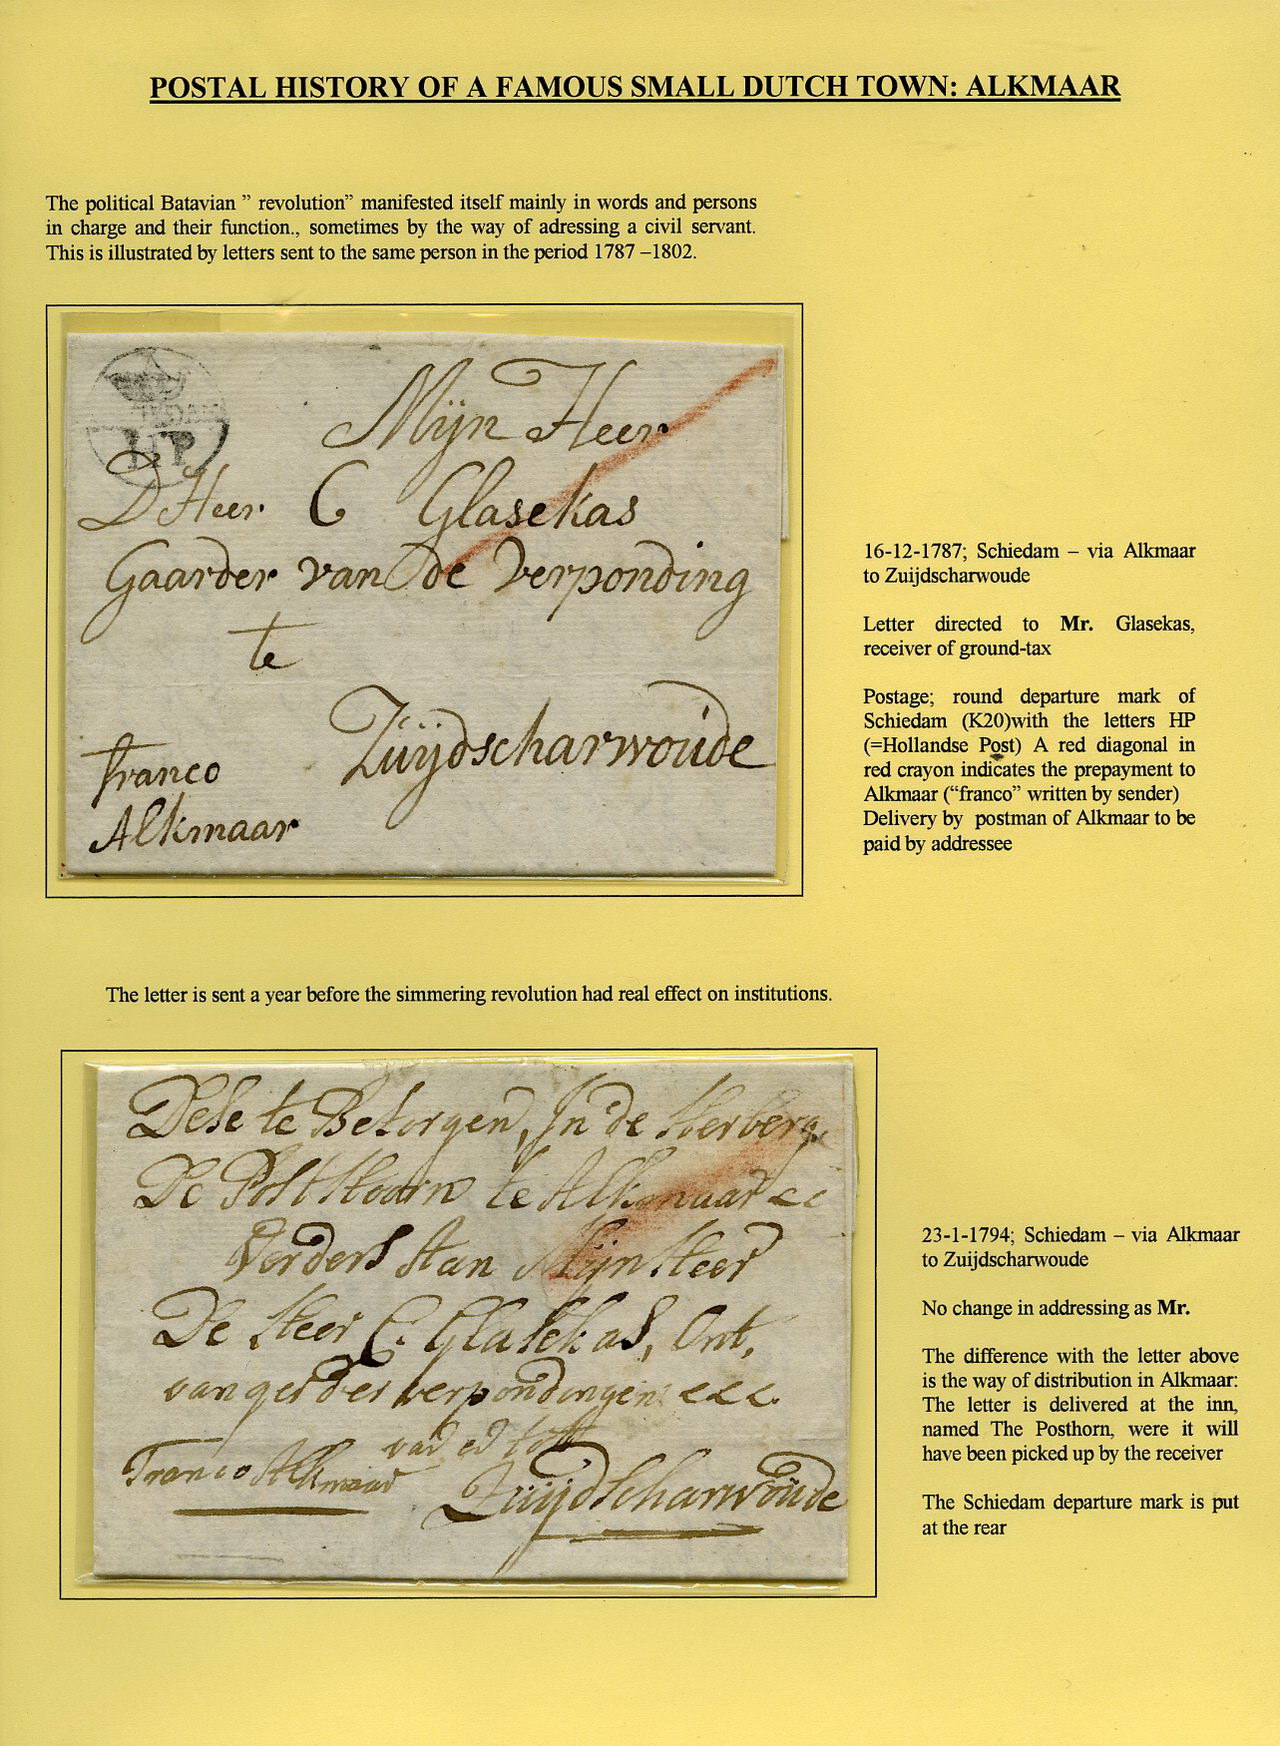 POSTAL HISTORY OF A FAMOUS SMALL DUTCH TOWN: ALKMAAR
The political Batavian ” revolution” manifested itself mainly in words and persons
in charge and their function., sometimes by the way of adressing a civil servant.
This is illustrated by letters sent to the same person in the period 1787 –1802.
HP
Mijn Heer
D Heer C Glasekas
Gaarder van de verponding
te
Zuijdscharwoude
franco
Alkmaar
16-12-1787; Schiedam – via Alkmaar
to Zuijdscharwoude
Letter directed to Mr. Glasekas,
receiver of ground-tax
Postage; round departure mark of
Schiedam (K20)with the letters HP
(=Hollandse Post) A red diagonal in
red crayon indicates the prepayment to
Alkmaar (“franco” written by sender)
Delivery by postman of Alkmaar to be
paid by addressee
The letter is sent a year before the simmering revolution had real effect on institutions.
Dese te Besorgen, In de Herberg
De Post Hoorn te Alkmaar
Verders Aan Mijn Heer
De Heer C. Glasekas, Ont,
vanger der verpondingen
Franco Alkmaar
Zuijdscharwoude
23-1-1794; Schiedam – via Alkmaar
to Zuijdscharwoude
No change in addressing as Mr.
The difference with the letter above
is the way of distribution in Alkmaar:
The letter is delivered at the inn,
named The Posthorn, were it will
have been picked up by the receiver
The Schiedam departure mark is put
at the rear